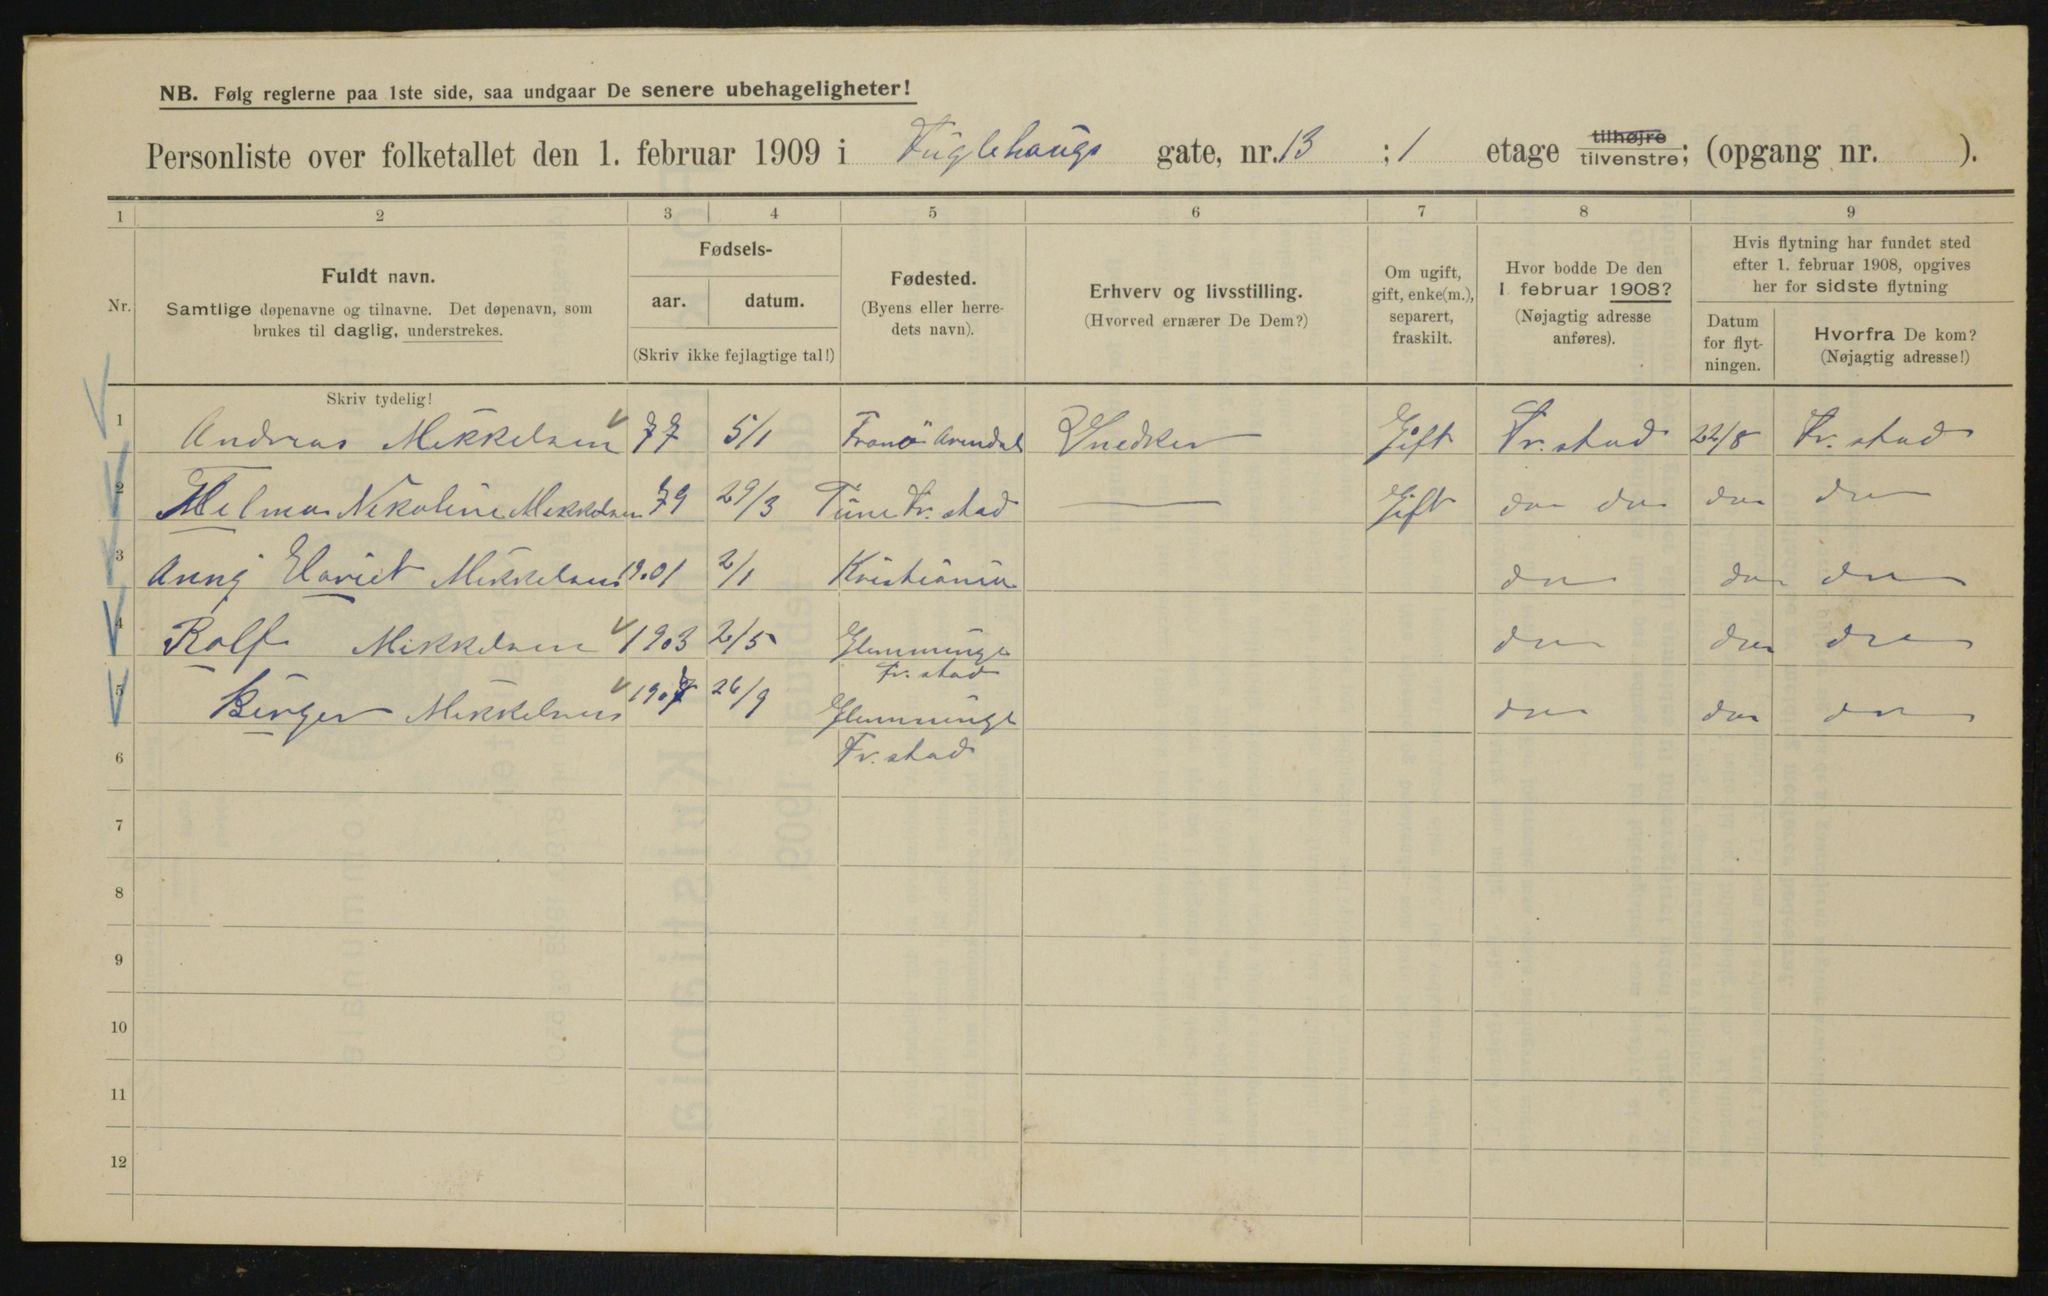 NB. Følg reglerne paa 1ste side, saa undgaar De senere ubehageligheter!
Personliste over folketallet den 1. februar 1909 i Fuglehaugs gate, nr. 13 ; 1 etage tilhøjre tilvenstre; (opgang nr. ).
1 2 3 4 5 6 7 8 9
Nr.
Fuldt navn.
Samtlige døpenavne og tilnavne. Det døpenavn, som
brukes til daglig, understrekes.
Fødsels-
aar. datum.
(Skriv ikke fejlagtige tal!)
Fødested.
(Byens eller herre-
dets navn).
Erhverv og livsstilling.
(Hvorved ernærer De Dem?)
Om ugift,
gift, enke(m.),
separert,
fraskilt.
Hvor bodde De den
1. februar 1908?
(Nøjagtig adresse
anføres).
Hvis flytning har fundet sted
efter 1. februar 1908, opgives
her for sidste flytning
Datum
for flyt-
ningen.
Hvorfra De kom?
(Nøjagtig adresse!)
Skriv tydelig!
1 Andreas Mikkelsen 77 5/1 Tromö Arendal Snedker Gift Fr. stad 22/8 Fr. stad
2 Helma Nikoline Mikkelsen 79 29/3 Tune Fr. stad — Gift do do do do
3 Anny Hariet Mikkelsen 1901 2/1 Kristiania do do do
4 Rolf Mikkelsen 1903 2/5 Glemminge do do do
Fr. stad
5 Birger Mikkelsen 26/9 Glemminge do do do
6 Fr. stad
7
8
9
10
11
12